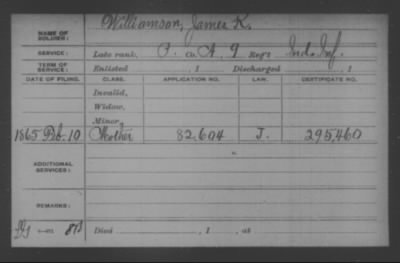 NAME OF SOLDIER: Williamson, James K.
SERVICE: Late rank, P. Co. A, 9 Reg't Ind. Inf.
TERM OF SERVICE: Enlisted , 1 Discharged , 1
DATE OF FILING. CLASS. APPLICATION NO. LAW. CERTIFICATE NO.
Invalid,
Widow,
Minor,
1865 Feb. 10 Mother 82,604 J. 295,460
ADDITIONAL SERVICES:
REMARKS:
Died , 1 , at